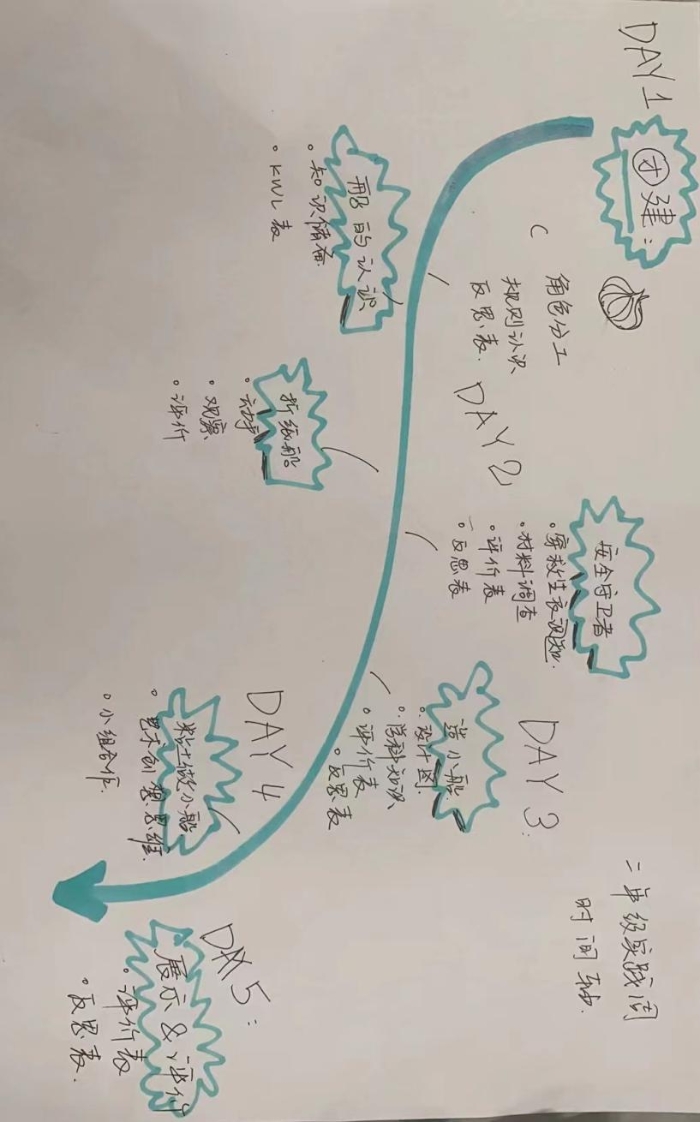 二年级实践周
时间轴
DAY 1
团建：
角色分工
规则认识
反思表
船的认识
。知识储备
。KWL表
DAY 2
折纸船
。动手
。观察
。评价
安全守卫者
。穿救生衣
。材料调查
。评价表
。反思表
DAY 3：
造小船
。设计图
。学科知识
。评价表
。反思表
DAY 4
粘土做小船
。艺术创想思维
。小组合作
DAY 5：
展示&评价
。评价表
。反思表